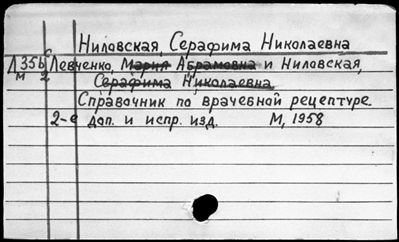 Ниловская, Серафима Николаевна
Л35б Левченко, Мария Абрамовна и Ниловская,
м 2 Серафима Николаевна
Справочник по врачебной рецептуре.
2-е доп. и испр. изд. М, 1958